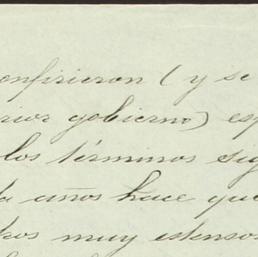 onfirieron (y se
rior gobierno) esp
los términos sig
ta años hace que
tros muy estensos